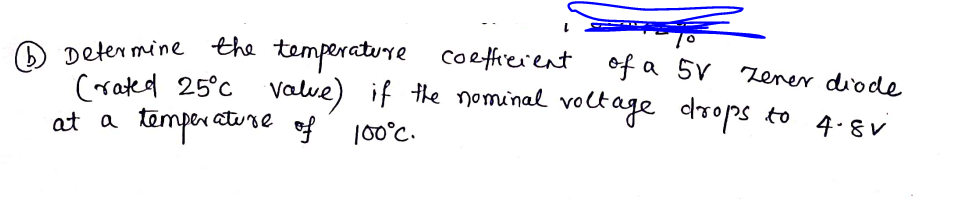 (b) Determine the temperature coefficient of a 5V zener diode
(rated 25°C value) if the nominal voltage drops to 4.8V
at a temperature of 100°C.